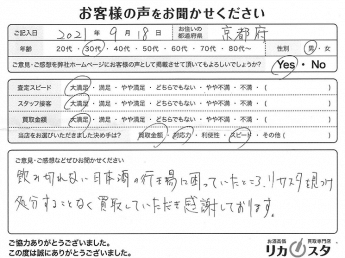 お客様の声をお聞かせください
ご記入日 2021年 9月 18日 お住いの都道府県 京都府
年齢 20代・30代・40代・50代・60代・70代・80代〜 性別 男・女
ご意見・ご感想を弊社ホームページにお客様の声として掲載させて頂いてもよろしいでしょうか？ Yes・No
査定スピード 大満足・満足・やや満足・どちらでもない・やや不満・不満・( )
スタッフ接客 大満足・満足・やや満足・どちらでもない・やや不満・不満・( )
買取金額 大満足・満足・やや満足・どちらでもない・やや不満・不満・( )
当店をお選びいただきました決め手は？ 買取金額・対応力・利便性・スピード・その他( )
ご意見・ご感想などぜひお聞かせください
飲み切れない日本酒の行き場に困っていたところ、リカスタを見つけ
処分することなく買取していただき感謝しております。
ご協力ありがとうございました。
この度は誠にありがとうございました。
お酒高価買取専門店
リカスタ